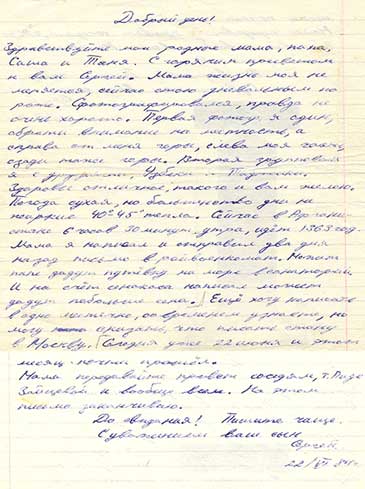 Добрый день!
Здравствуйте мои родные мама, папа,
Саша и Таня. С горячим приветом
к вам Сергей. Мама жизнь моя не
меняется, сейчас стою дневальным по
роте. Сфотографировался, правда не
очень хорошо. Первая фотогр. я один,
обрати внимание на местность, а
справа от меня горы, слева моя часть,
сзади тоже горы. Вторая групповая
я с друзьями, Узбеки и
Здоровье отличное, такого и вам желаю.
Погода сухая, но большинство дни не
жаркие 40°-45° тепла. Сейчас в Афгани-
стане 6 часов 30 минут утра, идёт 1363 год.
Мама я написал и отправил два дня
назад письмо в райвоенкомат. Может
папе дадут путёвку на море в санаторий.
И на счёт сенокоса написал может
дадут побольше сена. Ещё хочу написать
одно местечко, со временем узнаете, но
могу сказать, что писать стану
в Москву. Сегодня уже 22 июня и этот
месяц почти прошёл.
Мама передавайте привет соседям, т. Розе
Зайцевой и вообще всем. На этом
письмо заканчиваю.
До свидания! Пишите чаще.
С уважением ваш сын
Сергей
22/VI 84г.